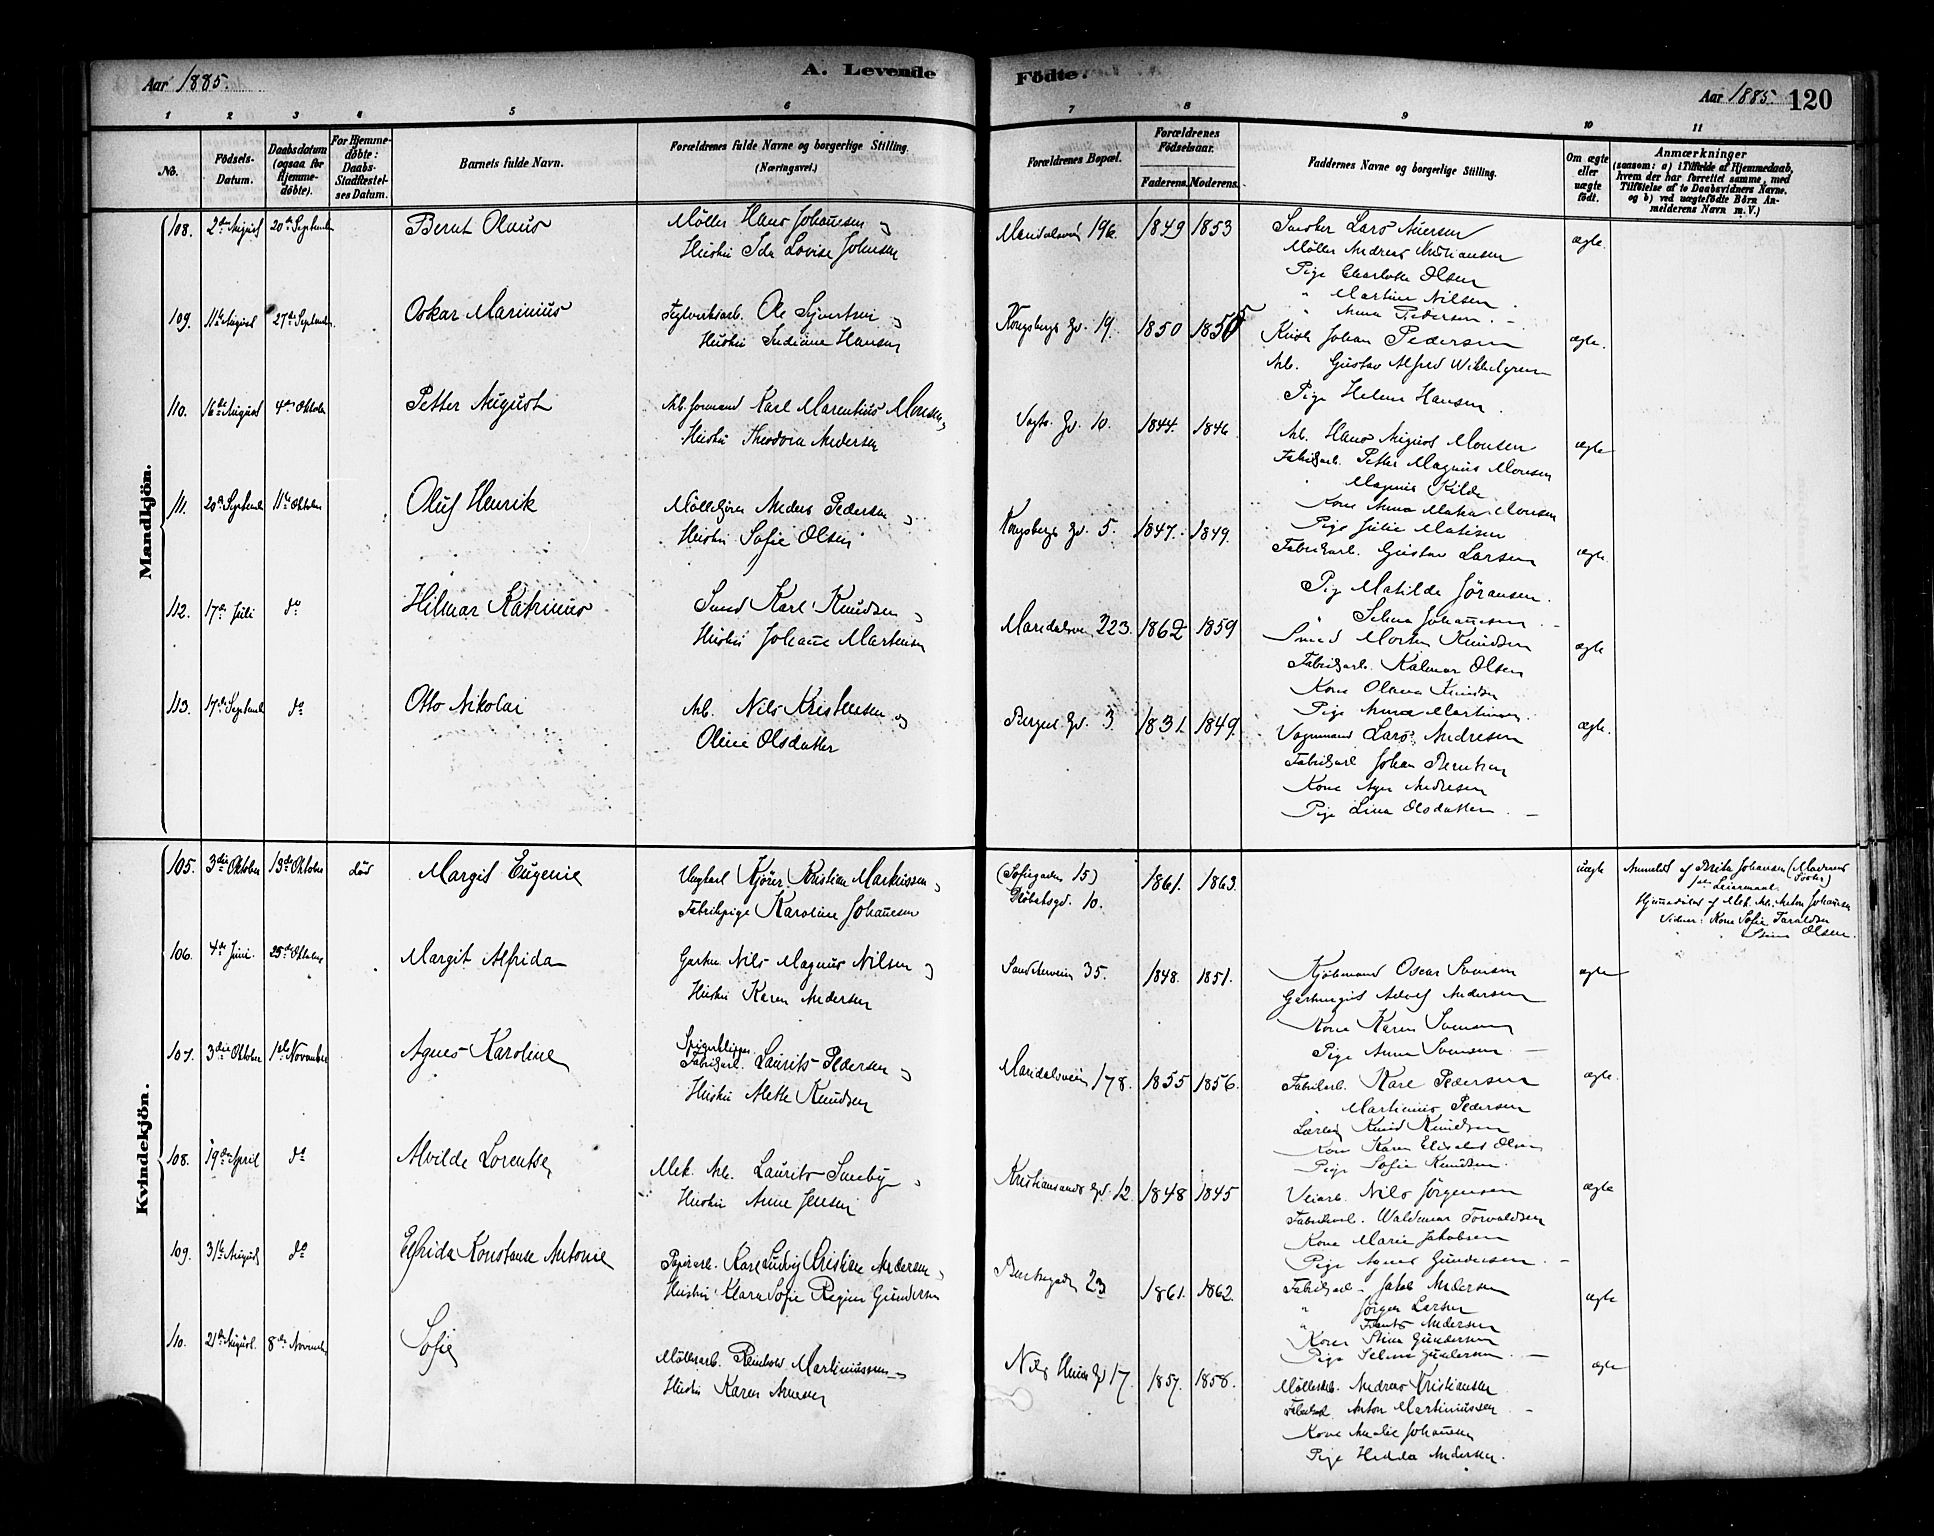 Aar 1885.
A. Levende Födte.
Aar 1885. 120
1 2 3 4 5 6 7 8 9 10 11
No.
Födsels-Datum.
Daabsdatum (ogsaa for Hjemmedöbte).
For Hjemmedöbte: Daabs-Stadfæstelses Datum.
Barnets fulde Navn.
Forældrenes fulde Navne og borgerlige Stilling. (Næringsvei.)
Forældrenes Bopæl.
Forældrenes Födselsaar.
Faderens. Moderens.
Faddernes Navne og borgerlige Stilling.
Om ægte eller uægte födt.
Anmærkninger (saasom: a) i Tilfælde af Hjemmedaab, hvem der har forrettet samme, med Tilföielse af to Daabsvidners Navne, og b) ved uægtefödte Börn Anmelderens Navn m. V.)
Mandkjön.
108. 2den August 20de September Bernt Olaus
Møller Hans Johansen og
Hustru Ida Lovise Johnsen
Maridalsvei 196. 1849 1853
Snedker Lars Iversen
Møller Andreas Kristiansen
Pige Charlotte Olsen
" Martine Nilsen
" Anna Pedersen
ægte
109. 11te August 27de September Oskar Marinius
Teglverksarb. Ole Syvertsen og
Hustru Indiane Hansen
Kongsbergs Gd. 19. 1850 1855
Kusk Johan Pedersen
Arb. Gustav Alfred Wilhelgren
Pige Helene Hansen
ægte.
110. 16de August 4de Oktober Petter August
Arb. formand Karl Marentius Monsen og
Hustru Theodora Andersen
Vogts Gd. 10. 1844. 1846
Arb. Hans August Monsen
Fabrikarb. Petter Magnus Monsen
" Magnus Kilde
Kone Anna Monsen
Pige Julie Matisen
ægte
111. 20de Septemb 11te Oktober Oluf Henrik
Anders Pedersen og
Hustru Sofie Olsen
Kongsbergs Gd. 5. 1847. 1849.
Fabrikarb. Gustav Larsen
Pige Matilde Jöransen.
" Selma Johannesen
ægte
112. 17de Juli do Hilmar Katrinus
Smed Karl Knudsen og
Hustru Johanne Martinsen
Maridalsveien 223. 1862 1859
Smed Morten Knudsen
Fabrikarb. Kalmar Olsen
Kone Olava Knudsen
Pige Anna Martinsen
ægte
113. 17de Septemb do Otto Nikolai
Arb. Nils Kristensen og
Oline Olsdatter
Bergens Gd. 3. 1831. 1849.
Vognmand Lars Andresen
Fabrikarb Johan Berntsen
Kone Agn Andresen
Pige Lina Olsdatter
ægte.
Kvindekjön.
105. 3die Oktober 13de Oktober død Margit Eugenie
Ungkarl Kjører Kristian Markussen og
Fabrikpige Karoline Johansen
(Sofiegaden 15)
10. 1861. 1863.
uægte
Anmeldt af Johansen (Moderens
1ste Leiermaal.
Hjemmedøbt af Mek. Arb. Anton Johansen
Vidner: Kone Sofie Taraldsen
Stine Olsen.
106. 4de Juni. 25de Oktober Margit Alfrida
Gartner Nils Magnus Nilsen og
Hustru Karen Andersen
Sandakerveien 35. 1848. 1851.
Kjøbmand Oscar Svensen
Adolf Andersen
Kone Karen Svensen
Pige Anna Svensen
ægte
107. 3die Oktober 1ste November Agnes Karoline
Spigerklipper
Fabrikarb. Laurits Pedersen og
Hustru Mette Knudsen
Maridalsveien 178. 1855 1856.
Fabrikarb. Karl Pedersen
" Martinius Pedersen
Lærling Knud Knudsen
Kone Karen Elisabet Olsen
Pige Sofie Knudsen.
ægte.
108. 19de April do Alvilde Lorentse
Mek. Arb. Laurits Sneby og
Hustru Anne Jensen
Kristiansands Gd. 12 1848 1845
Veiarb. Nils Jörgensen
Fabrikarb. Waldemar Torvaldsen
Kone Marie Jakobsen
Pige Agnes Gundersen.
ægte
109. 31te August do Elfrida Konstanse Antonie
Papirarb. Karl Ludvig Kristian Andersen og
Hustru Klara Sofie Regine Gundersen
23 1861. 1862.
Fabrikarb. Jakob Andersen
" Jörgen Larsen
" Andersen
Kone Stina Gundersen
Pige Selma Gundersen
ægte
110. 21de August. 8de Novemb. Sofie
Møllearb. Reinhold Martiniussen og
Hustru Karen Arnesen
17. 1857. 1858.
Møllearb. Andreas Kristiansen
Fabrikarb. Anton Martiniussen
Kone Amalie Johansen
Pige Hedda Andersen.
ægte